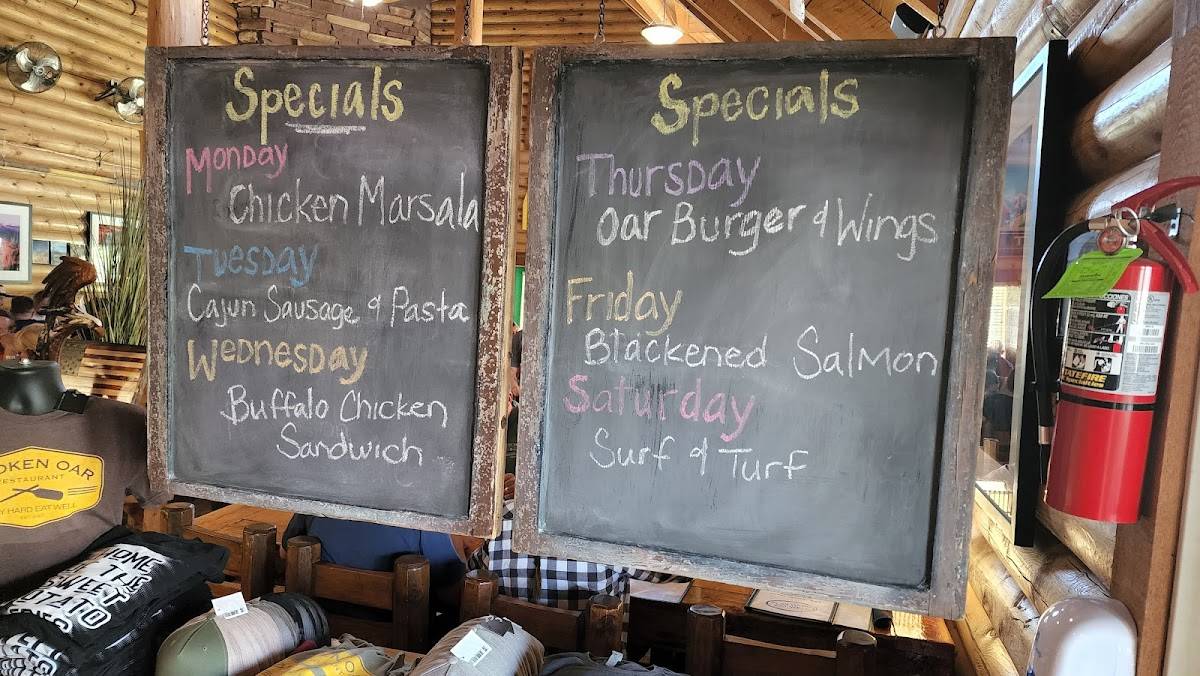 Specials
Monday
Chicken Marsala
Tuesday
Cajun Sausage & Pasta
Wednesday
Buffalo Chicken
Sandwich
Specials
Thursday
Oar Burger & Wings
Friday
Blackened Salmon
Saturday
Surf & Turf
OKEN OAR
ESTAURANT
Y HARD EAT WELL
OME
THE
SWEET
TO